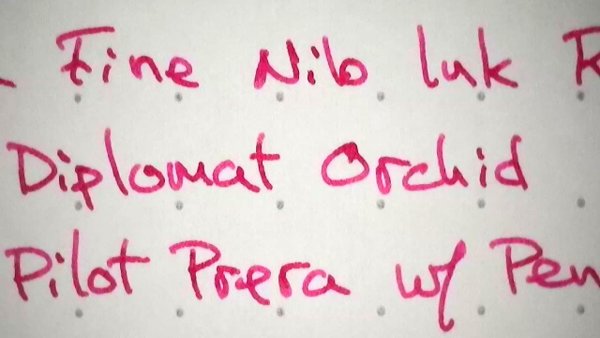 Fine Nib Ink R
Diplomat Orchid
Pilot Prera w/ Pen